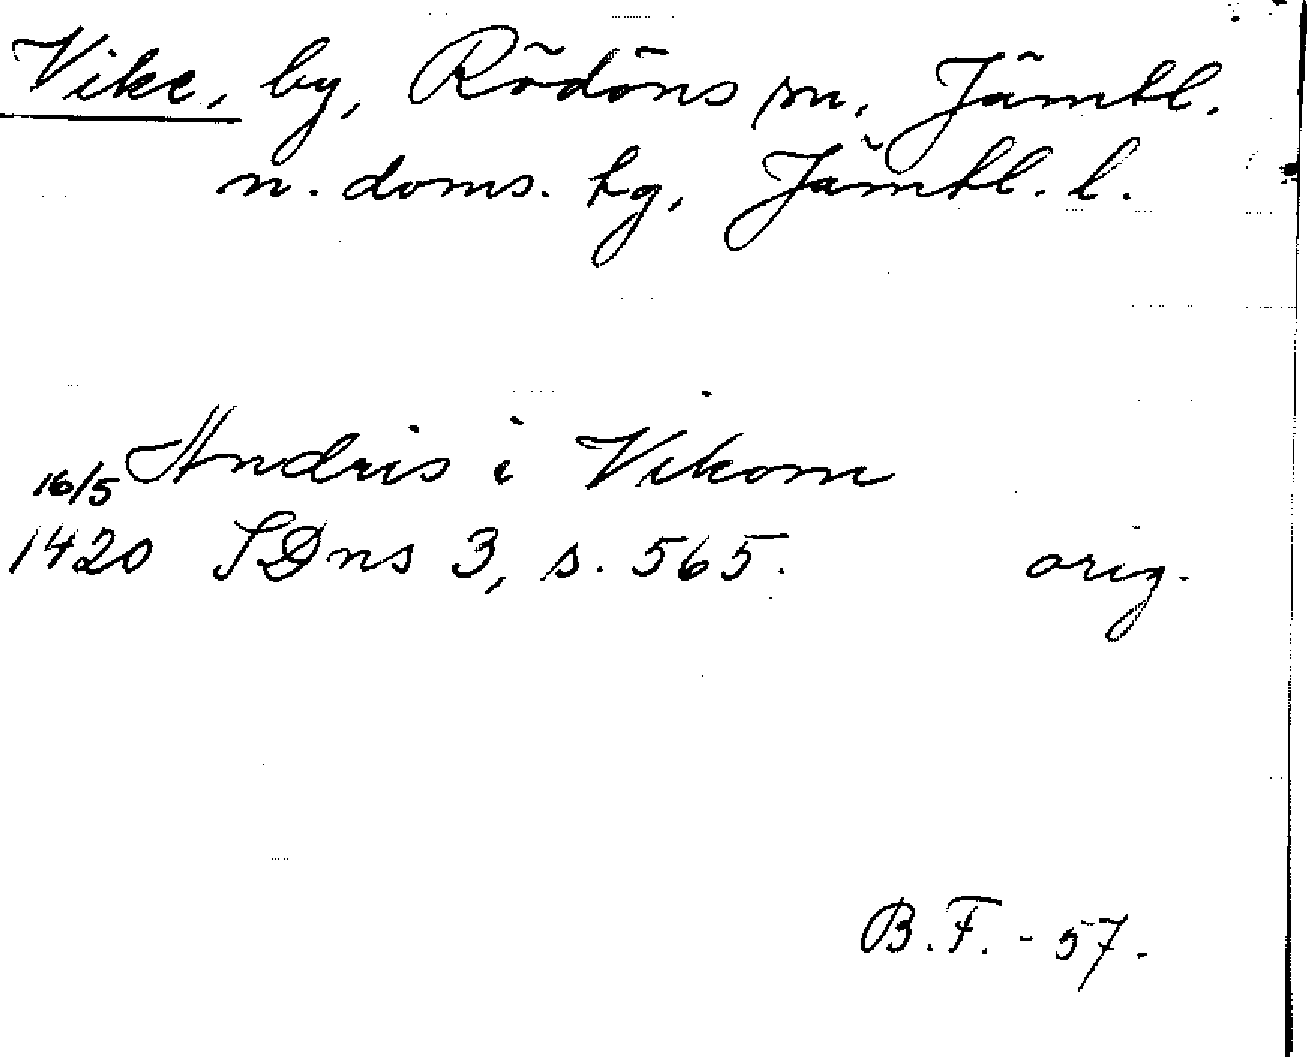 Vike, by, Rödöns sn, Jämtl.
n. doms. hg, Jämtl. l.
16/5 Andris i Vikom
1420 SDns 3, s. 565. orig.
B.F. - 57.